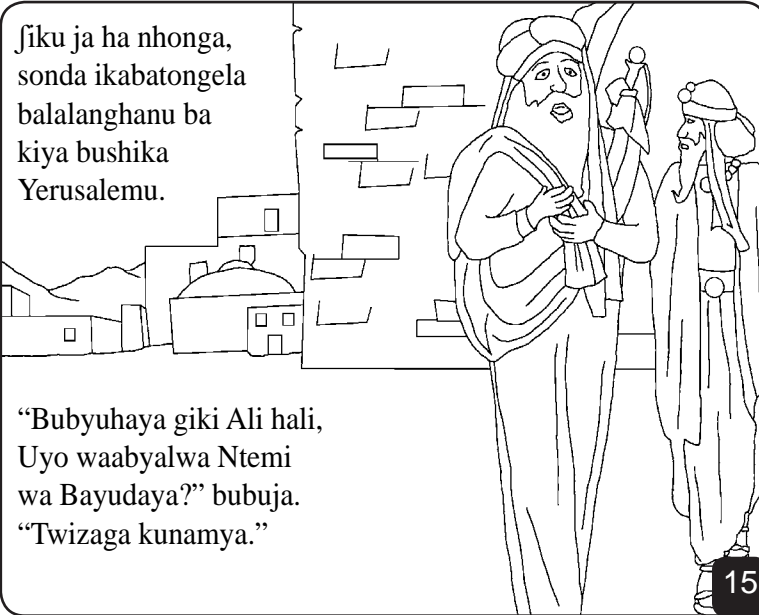 ʃiku ja ha nhonga,
sonda ikabatongela
balalanghanu ba
kiya bushika
Yerusalemu.
“Bubyuhaya giki Ali hali,
Uyo waabyalwa Ntemi
wa Bayudaya?” bubuja.
“Twizaga kunamya.”
15